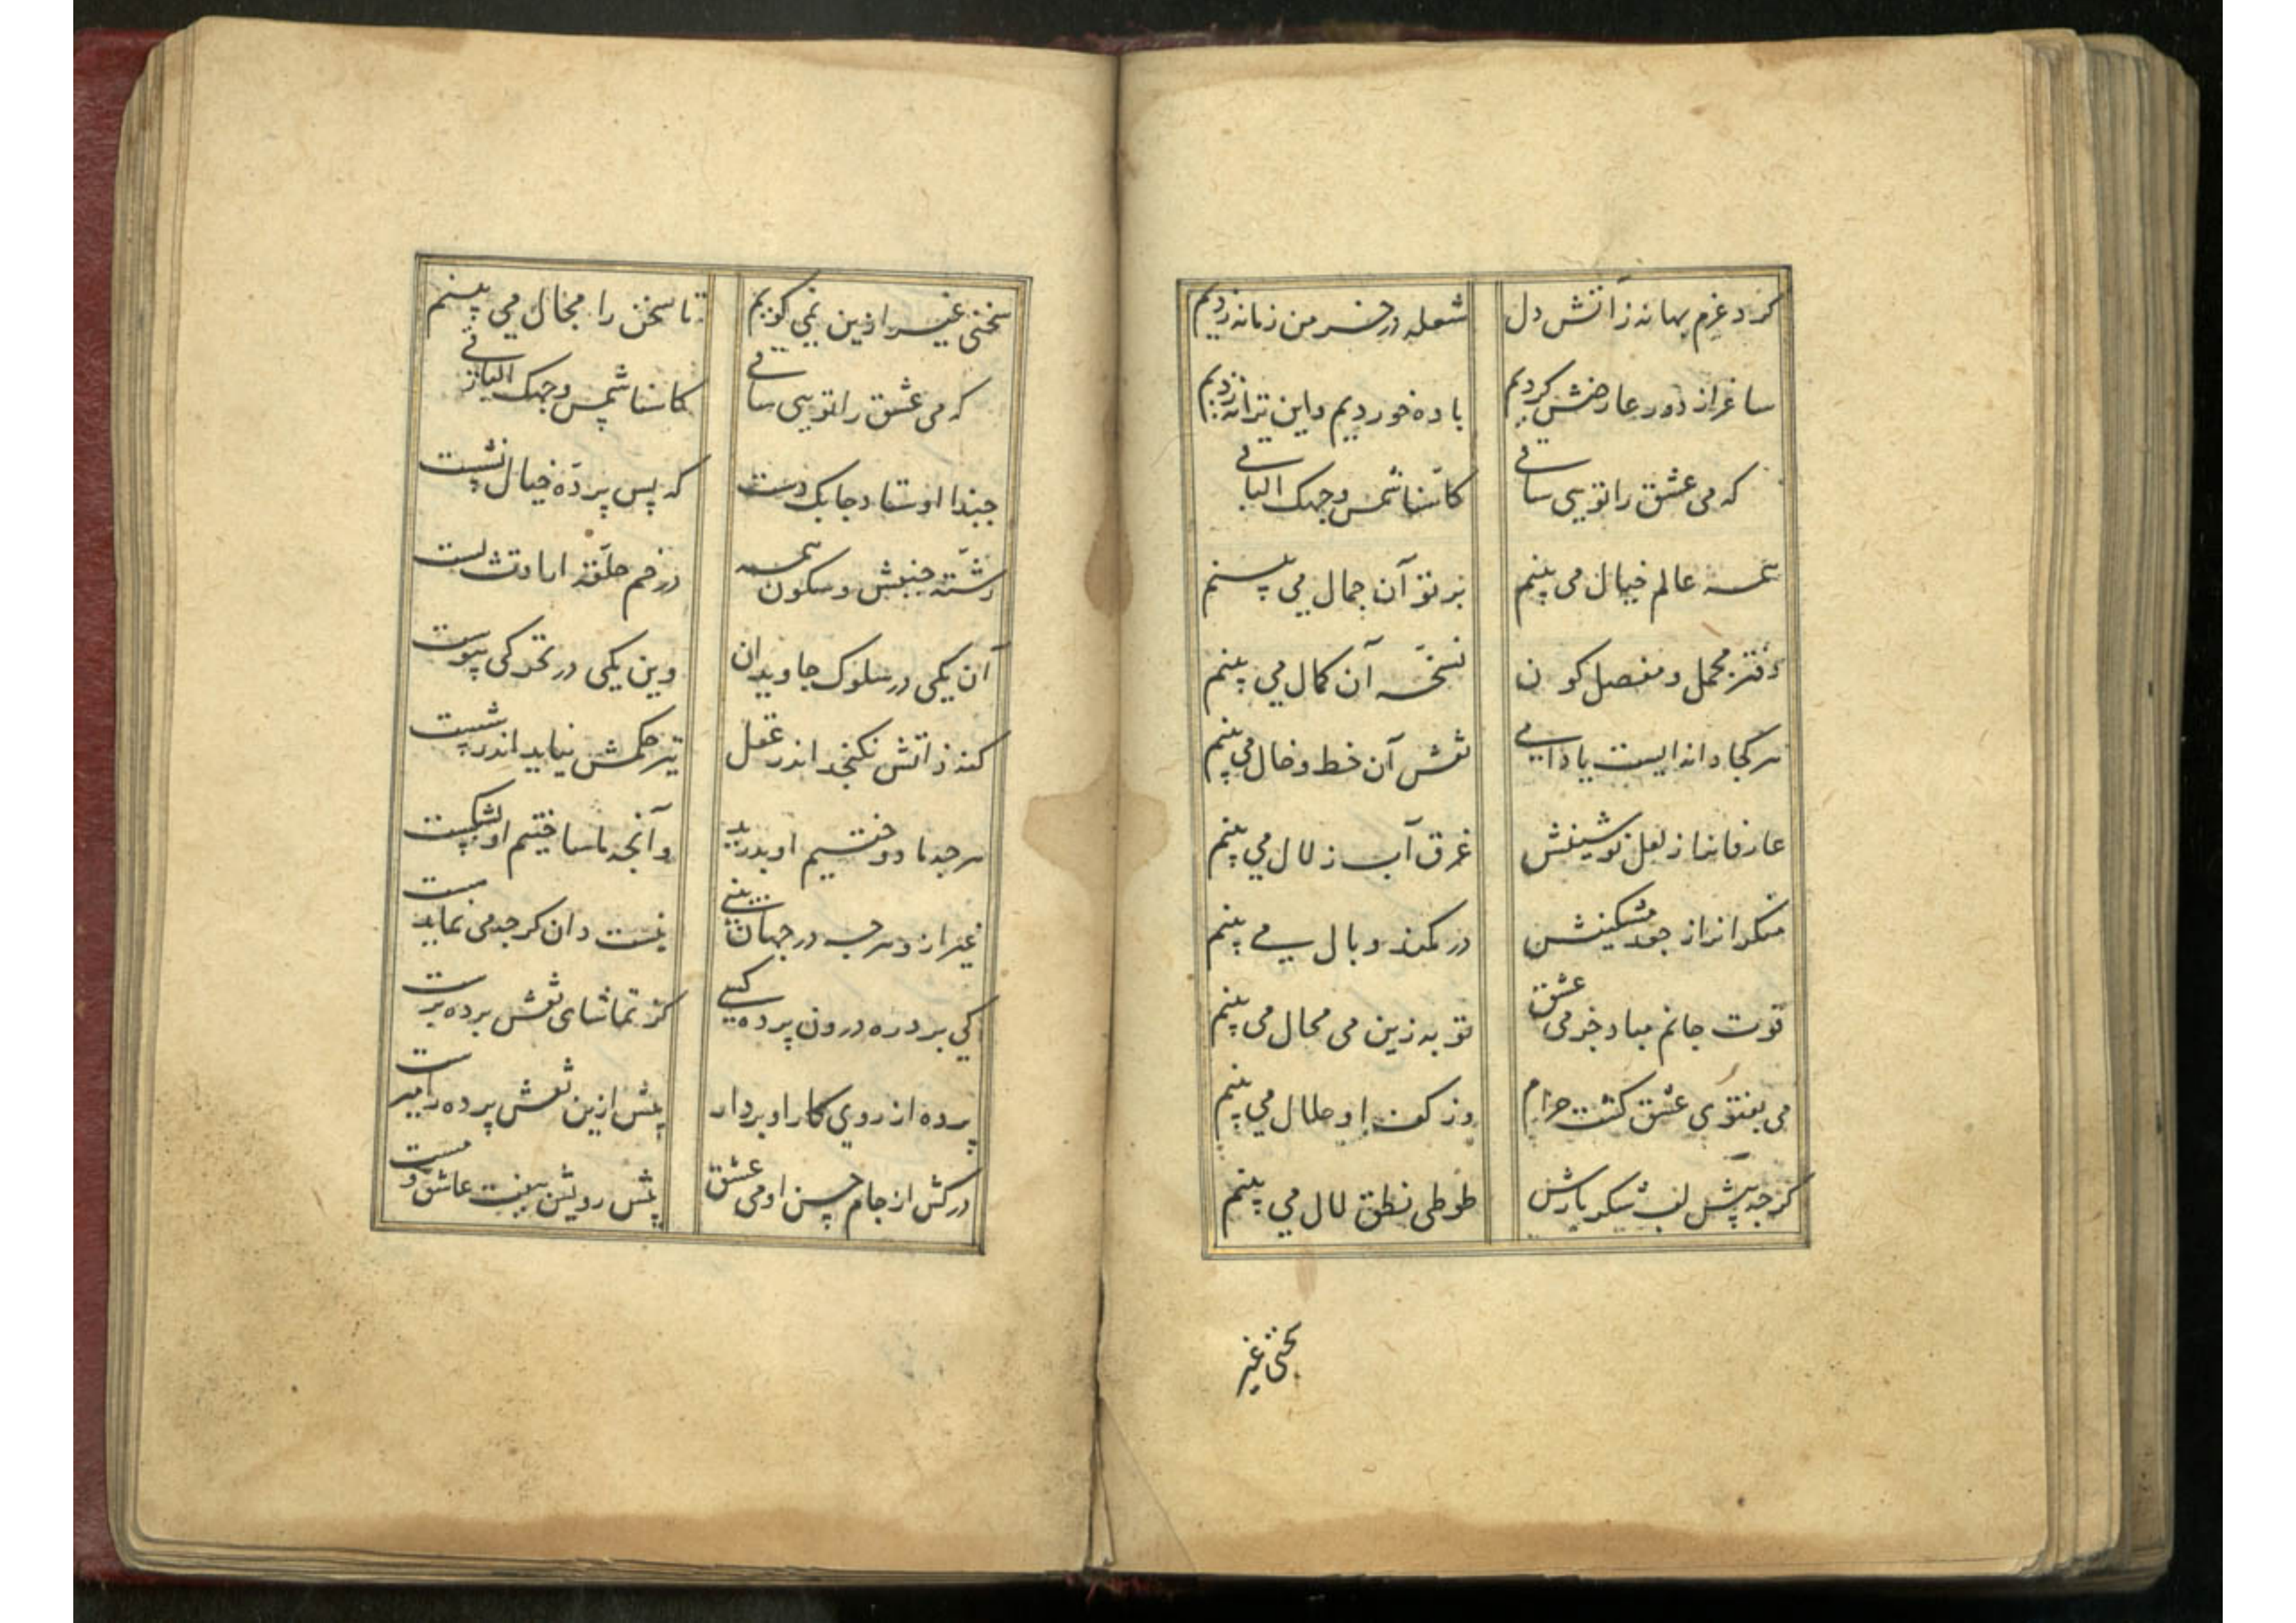 کرد عزم بهانه ز آتش دل شعله در خرمن زمانه زدیم
ساغر از دور عارضش کردیم باده خوردیم و این ترانه زدیم
که می عشق را تویی ساقی کاسنا شمس وجهک الباقی
همه عالم خیال می بینم پرتو آن جمال می بینم
دفتر مجمل و مفصل کون نسخه آن کمال می بینم
هر کجا دانه ایست یا دامی نقش آن خط و خال می بینم
عارفانرا ز لعل نوشینش غرق آب زلال می بینم
منکرانرا ز جعد مشکینش در کمند وبال می بینم
قوت جانم مباد جز می عشق توبه زین می محال می بینم
می بفتوی عشق گشت حرام وز کف او حلال می بینم
گرچه پیش لب شکر بارش طوطی نطق لال می بینم
سخنی غیر
سخنی غیر ازین نمی گویم تا سخن را مجال می بینم
که می عشق را تویی ساقی کاسنا شمس وجهک الباقی
حبذا اوستاد چابک دست که پس پرده خیال نشست
رشته جنبش و سکون همه در خم حلقه ارادت بست
آن یکی در سلوک جاویدان وین یکی در تحرکی پیوست
کنه ذاتش نگنجد اندر عقل تیر حکمش نیاید اندر شست
هرچه ما دوختیم او بدرید وآنچه ما ساختیم او بشکست
غیر از و هرچه در جهان بینی نیست دان گرچه می نماید هست
کی برد ره درون پرده کسی کز تماشای نقش پرده برست
پرده از روی کار او بردار بیش ازین نقش پرده را مپرست
درکش از جام حسن او می عشق پیش رویش بیفت عاشق و مست